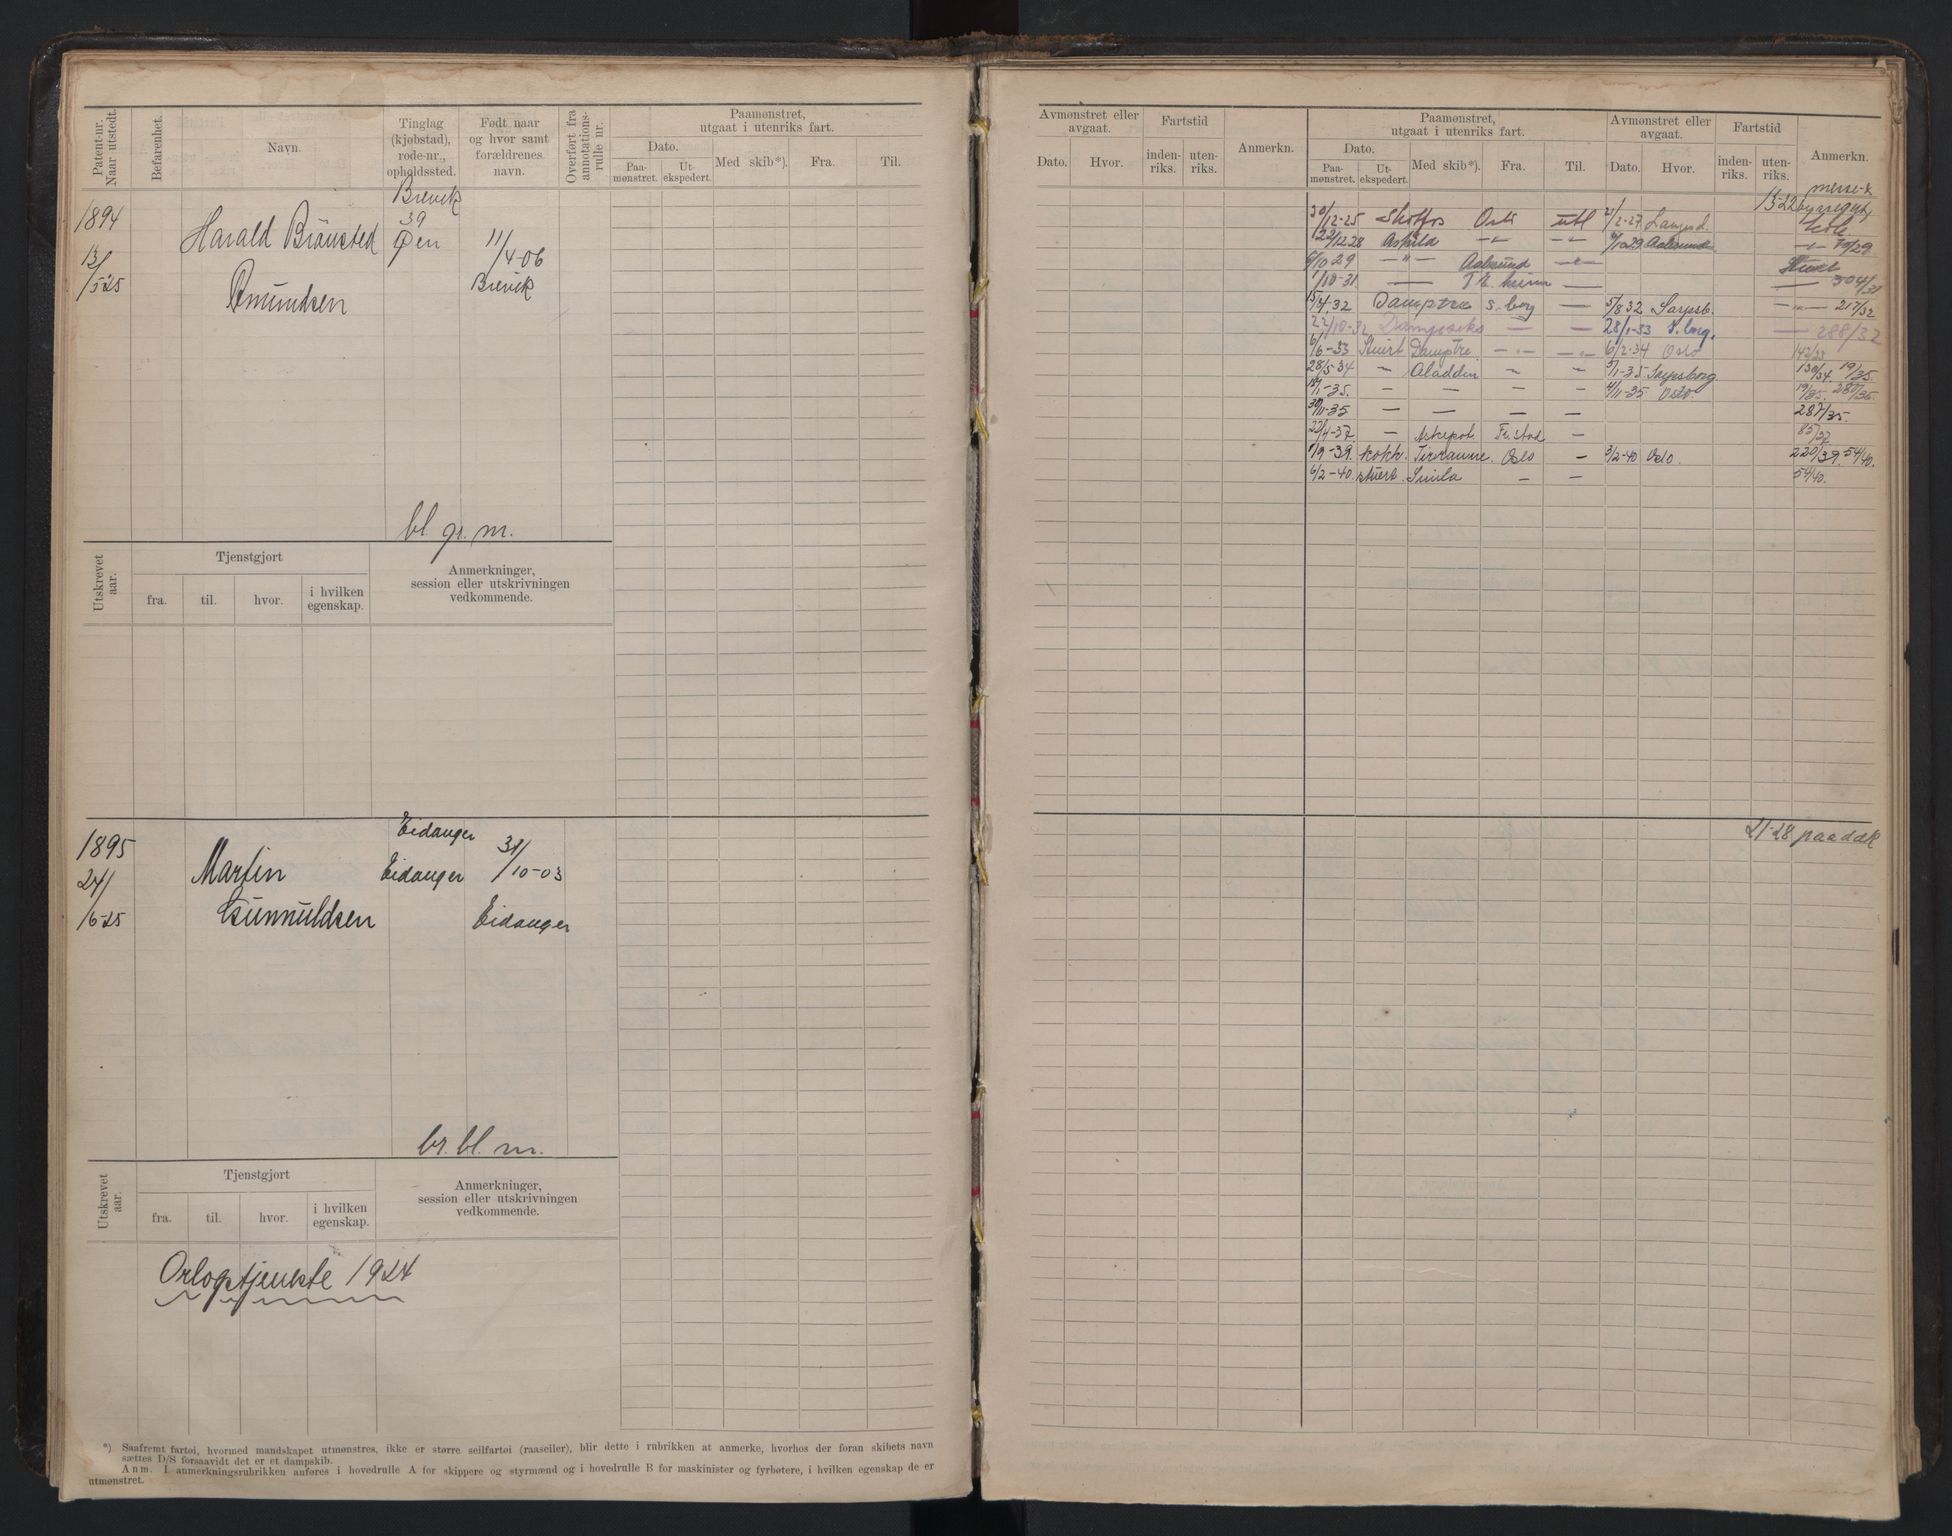 Patent-nr. Naar utstedt.
Befarenhet.
Navn.
Tinglag (kjøbstad), rode-nr., opholdssted.
Født naar og hvor samt forældrenes navn.
Overført fra annotations-rulle nr.
Paamønstret, utgaat i utenriks fart.
Dato.
Paa-mønstret.
Ut-ekspedert.
Med skib*).
Fra.
Til.
1894
13/5-25
Harald Brønsted
Amundsen
Brevik
39
Øen
11/4-06
Brevik
bl. gr. m.
Utskrevet aar.
Tjenstgjort
fra.
til.
hvor.
i hvilken egenskap.
Anmerkninger, session eller utskrivningen vedkommende.
1895
24/6-25
Martin
Gunnuldsen
Eidanger
Eidanger
31/10-03
Eidanger
br. bl. m.
Utskrevet aar.
Tjenstgjort
fra.
til.
hvor.
i hvilken egenskap.
Anmerkninger, session eller utskrivningen vedkommende.
Orlogstjenste 1924
*) Saafremt fartøi, hvormed mandskapet utmønstres, ikke er større seilfartøi (raaseiler), blir dette i rubrikken at anmerke, hvorhos der foran skibets navn
sættes D/S forsaavidt det er et dampskib.
Anm. I anmerkningsrubrikken anføres i hovedrulle A for skippere og styrmænd og i hovedrulle B for maskinister og fyrbøtere, i hvilken egenskap de er
utmønstret.
Avmønstret eller avgaat.
Dato.
Hvor.
Fartstid
inden-riks.
uten-riks.
Anmerkn.
Paamønstret, utgaat i utenriks fart.
Dato.
Paa-mønstret.
Ut-ekspedert.
Med skib*).
Fra.
Til.
Avmønstret eller avgaat.
Dato.
Hvor.
Fartstid
inden-riks.
uten-riks.
Anmerkn.
13-22
30/12-25 Skotfos Oslo utl 2/2-27 Langesd.
22/12 28 Askild — — 10 29 Aalesund — 70/29
6/10 29 — " — Aalesund —
1/10-31 — — 304/31
15/4 32 Damptre S.borg — 5/8 32 Sarpsb. — 217/32
22/10-32 — — 28/1-33 S.borg. — 288/32
6/6-33 Stuert Damptre — — 6/2-34 Oslo 142/33
28/5-34 — Aladdin — — 5/1-35 Sarpsborg 130/34. 19/35.
18/1-35. — — — — 4/11-35 Oslo. 19/35. 280/35.
30/11-35 — — — — 287/35.
22/4-37 — Askepot Fr.stad — 85/37
1/9-39. kokk. Oslo — 3/2-40 Oslo. 220/39. 54/40.
6/2-40. stuert. Simla — — 54/40.
21-28 paa dæk